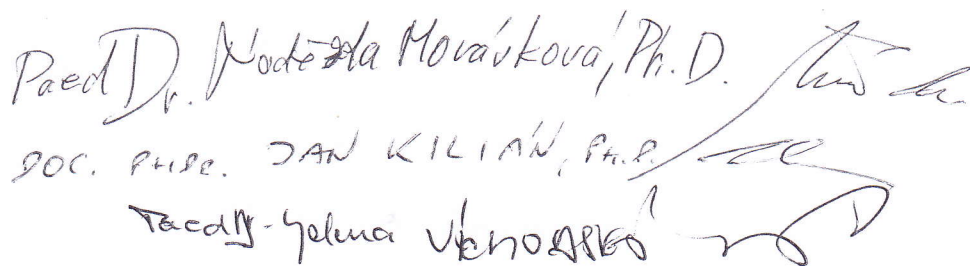 PaedDr. Naděžda Morávková, Ph.D.
DOC. PHDR. JAN KILIÁN, PH.D.
PaedDr. Helena VÝCHODSKÁ